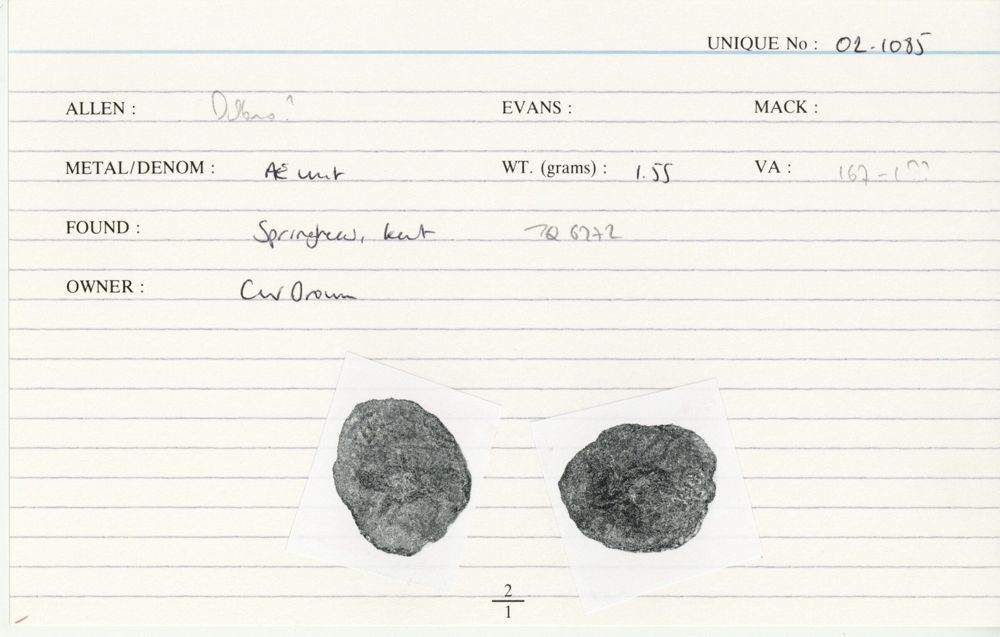 UNIQUE No : 02-1085
ALLEN : EVANS : MACK :
METAL/DENOM : AE unit WT. (grams) : 1.55 VA : 167-1??
FOUND : Springhead, Kent TQ 6272
OWNER : CW Brown
2
1